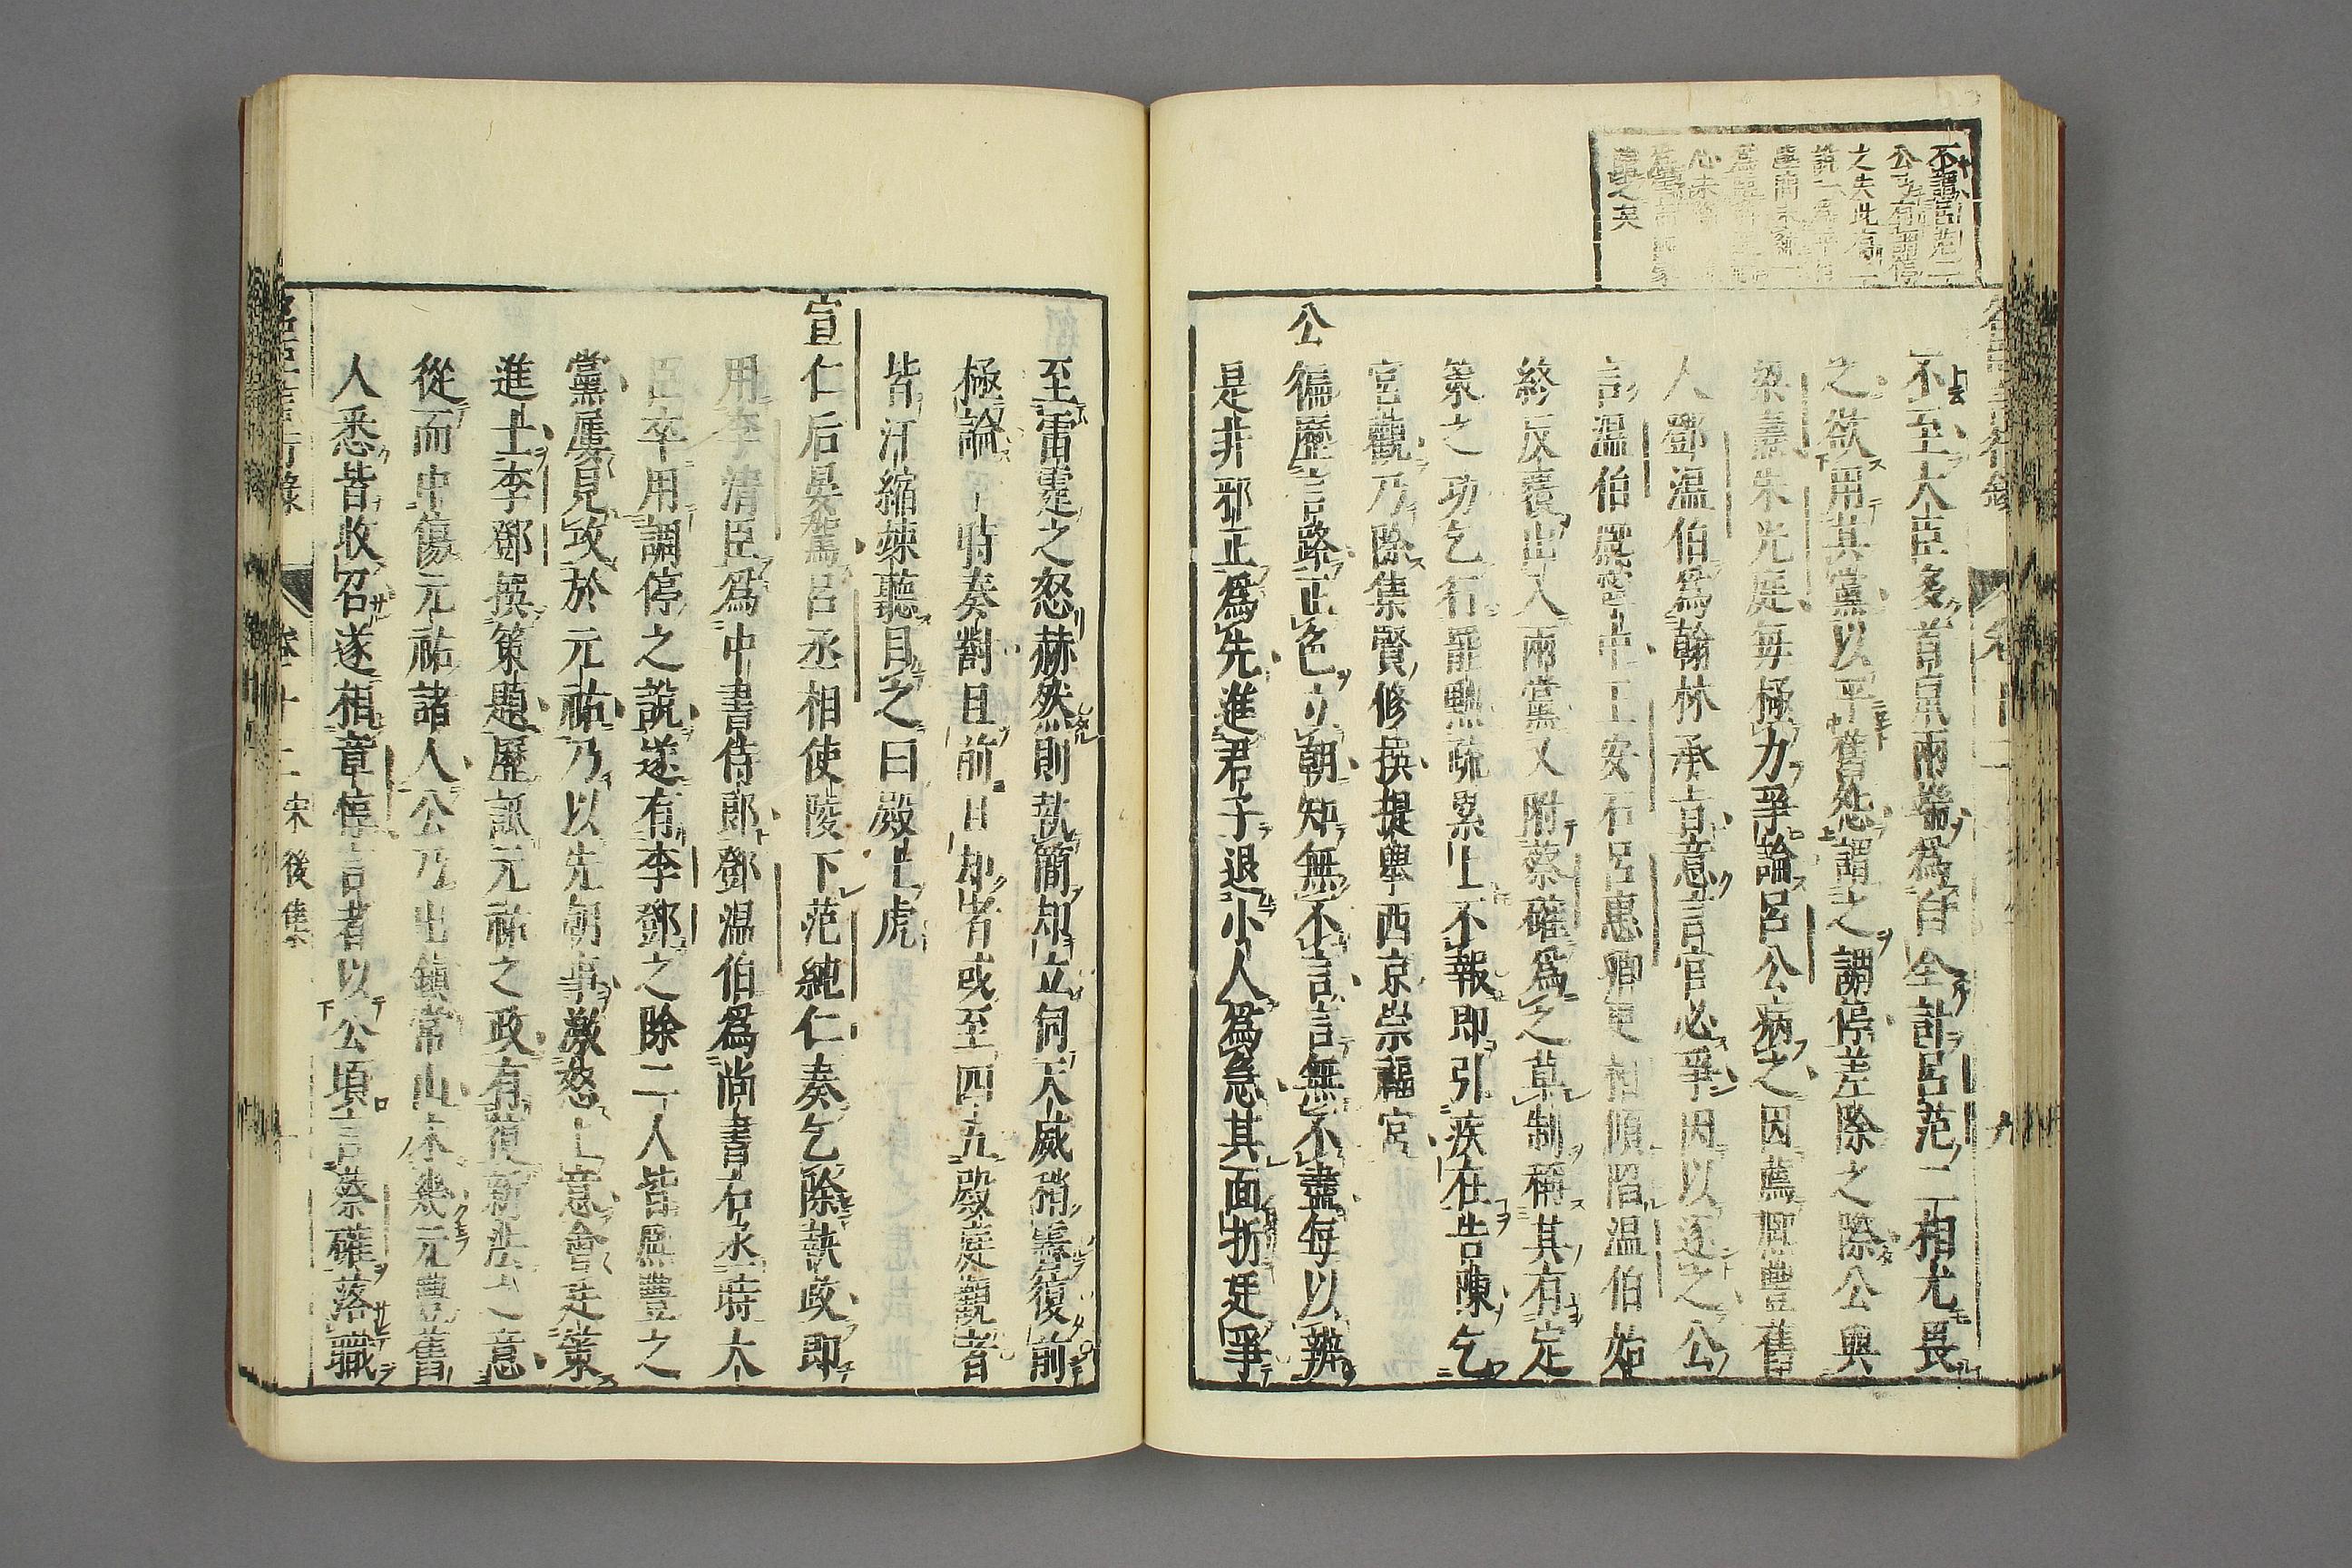 不謂呂范二
公乃有調停
之失此高一
不至大臣多首鼠兩端爲自全計呂范二相尤畏
之欲用其黨以平舊怨謂之調停差除之際公與
梁燾朱光庭每極力爭論呂公病之因薦熙豐舊
人鄧温伯爲翰林承旨意言官必爭因以逐之公
言温伯王安石呂惠卿更相傾陷温伯始
終反覆出入兩黨又附蔡確爲之草制稱其有定
策之功乞行罷黜疏累上不報即引疾在告陳乞
宮觀乃除集賢修撰提舉西京崇福宮
公徧歷言路正色立朝知無不言言無不盡每以辨
是非邪正爲先進君子退小人爲急其面折廷爭
至雷霆之怒赫然則執簡却立伺天威稍霽復前
極論一時奏對且前且却者或至四五殿庭觀者
皆汗縮竦聽目之曰殿上虎
宣仁后晏駕呂丞相使陵下范純仁奏乞除執政即
用李清臣爲中書侍郎鄧温伯爲尚書右丞時大
臣卒用調停之說遂有李鄧之除二人皆熙豐之
黨屢見攻於元祐乃以先朝事激怒上意會廷策
進士李鄧撰策題歷詆元祐之政有復新法之意
從而中傷元祐諸人公乃出鎮常山未幾元豐舊
人悉皆收召遂相章惇言者以公頃言蔡確落職
名臣言行録　卷十二　宋　後集